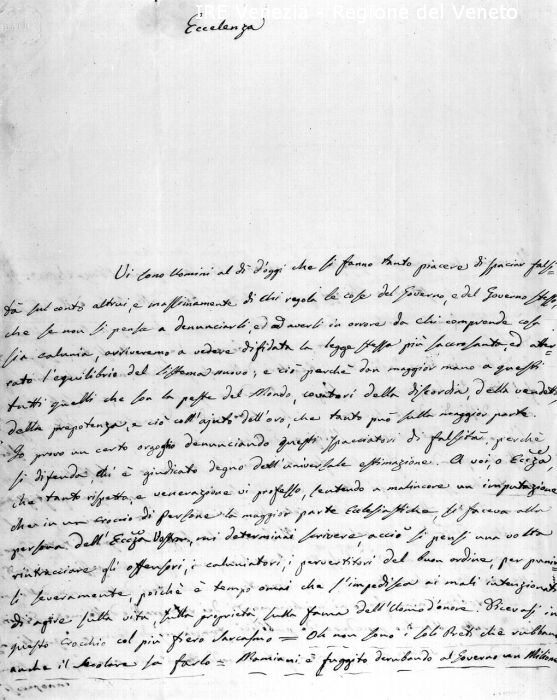 IRE Venezia - Regione del Veneto
Eccelenza
Vi sono Uomini al dì d'oggi che si fanno tanto piacere di spaciar falsi-
tà sul conto altrui, e massimamente di chi regola le cose del Governo, e del Governo stesso,
che se non si pensa a denunciarli, ed ad averli in orrore da chi comprende cosa
sia calunia, arriveremo a vedere difidata la legge stessa più sacrosanta, ed alte-
rato l'equilibrio del sistema nuovo; e ciò perchè dan maggior mano a questi
tutti quelli che son la peste del Mondo, covatori della discordia, della vendetta
della prepotenza, e ciò coll'ajuto dell'oro, che tanto può sulla maggior parte.
Io provo un certo orgoglio denunciando questi spacciatori di falsità, perchè
si difenda chi è giudicato degno dell'universale estimazione. A voi, o Eccza
che tanto rispetto, e venerazione vi professo, sentendo a malincore un imputazione
che in un croccio di Persone la maggior parte Ecclesiastiche, si faceva alla
persona dell'Eccza Vostra, mi determinai scrivere, acciò si pensi una volta
rintracciare gli offensori, i caluniatori, i pervertitori del buon ordine, per punir-
li severamente, poichè è tempo omai che s'impedisca ai mali intenzionati
di agire sulla vita, sulla proprietà, sulla fama dell'Uomo d'onore. Dicevasi in
questo Crocchio col più fiero sarcasmo = Oh non sono i soli Preti che rubbano
anche il secolare sa farlo = Mamiani è fuggito derubando al Governo un Milione